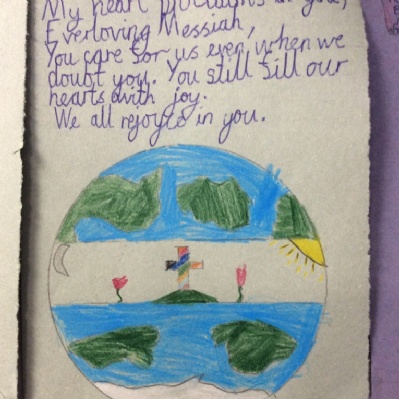 My heart proclaims in you,
Everloving Messiah,
You care for us even when we
doubt you. You still fill our
hearts with joy.
We all rejoyce in you.